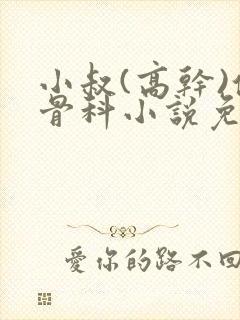 小叔(高幹)
骨科小說免
愛你的路不回